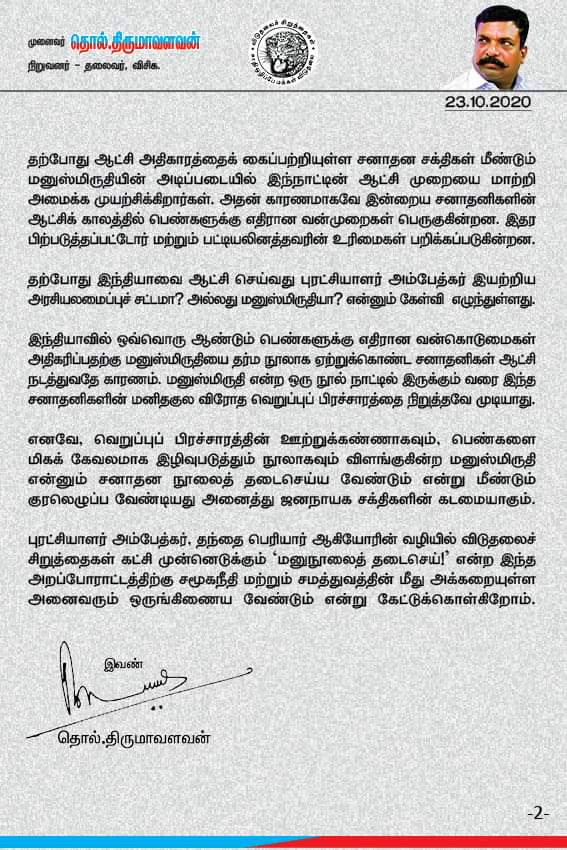 முனைவர் தொல்.திருமாவளவன்
நிறுவனர் - தலைவர், விசிக.
விடுதலைச் சிறுத்தைகள்
23.10.2020
தற்போது ஆட்சி அதிகாரத்தைக் கைப்பற்றியுள்ள சனாதன சக்திகள் மீண்டும்
மனுஸ்மிருதியின் அடிப்படையில் இந்நாட்டின் ஆட்சி முறையை மாற்றி
அமைக்க முயற்சிக்கிறார்கள். அதன் காரணமாகவே இன்றைய சனாதனிகளின்
ஆட்சிக் காலத்தில் பெண்களுக்கு எதிரான வன்முறைகள் பெருகுகின்றன. இதர
பிற்படுத்தப்பட்டோர் மற்றும் பட்டியலினத்தவரின் உரிமைகள் பறிக்கப்படுகின்றன.
தற்போது இந்தியாவை ஆட்சி செய்வது புரட்சியாளர் அம்பேத்கர் இயற்றிய
அரசியலமைப்புச் சட்டமா? அல்லது மனுஸ்மிருதியா? என்னும் கேள்வி எழுந்துள்ளது.
இந்தியாவில் ஒவ்வொரு ஆண்டும் பெண்களுக்கு எதிரான வன்கொடுமைகள்
அதிகரிப்பதற்கு மனுஸ்மிருதியை தர்ம நூலாக ஏற்றுக்கொண்ட சனாதனிகள் ஆட்சி
நடத்துவதே காரணம். மனுஸ்மிருதி என்ற ஒரு நூல் நாட்டில் இருக்கும் வரை இந்த
சனாதனிகளின் மனிதகுல விரோத வெறுப்புப் பிரச்சாரத்தை நிறுத்தவே முடியாது.
எனவே, வெறுப்புப் பிரச்சாரத்தின் ஊற்றுக்கண்ணாகவும், பெண்களை
மிகக் கேவலமாக இழிவுபடுத்தும் நூலாகவும் விளங்குகின்ற மனுஸ்மிருதி
என்னும் சனாதன நூலைத் தடைசெய்ய வேண்டும் என்று மீண்டும்
குரலெழுப்ப வேண்டியது அனைத்து ஜனநாயக சக்திகளின் கடமையாகும்.
புரட்சியாளர் அம்பேத்கர், தந்தை பெரியார் ஆகியோரின் வழியில் விடுதலைச்
சிறுத்தைகள் கட்சி முன்னெடுக்கும் ‘மனுநூலைத் தடைசெய்!’ என்ற இந்த
அறப்போராட்டத்திற்கு சமூகநீதி மற்றும் சமத்துவத்தின் மீது அக்கறையுள்ள
அனைவரும் ஒருங்கிணைய வேண்டும் என்று கேட்டுக்கொள்கிறோம்.
இவண்
தொல்.திருமாவளவன்
-2-